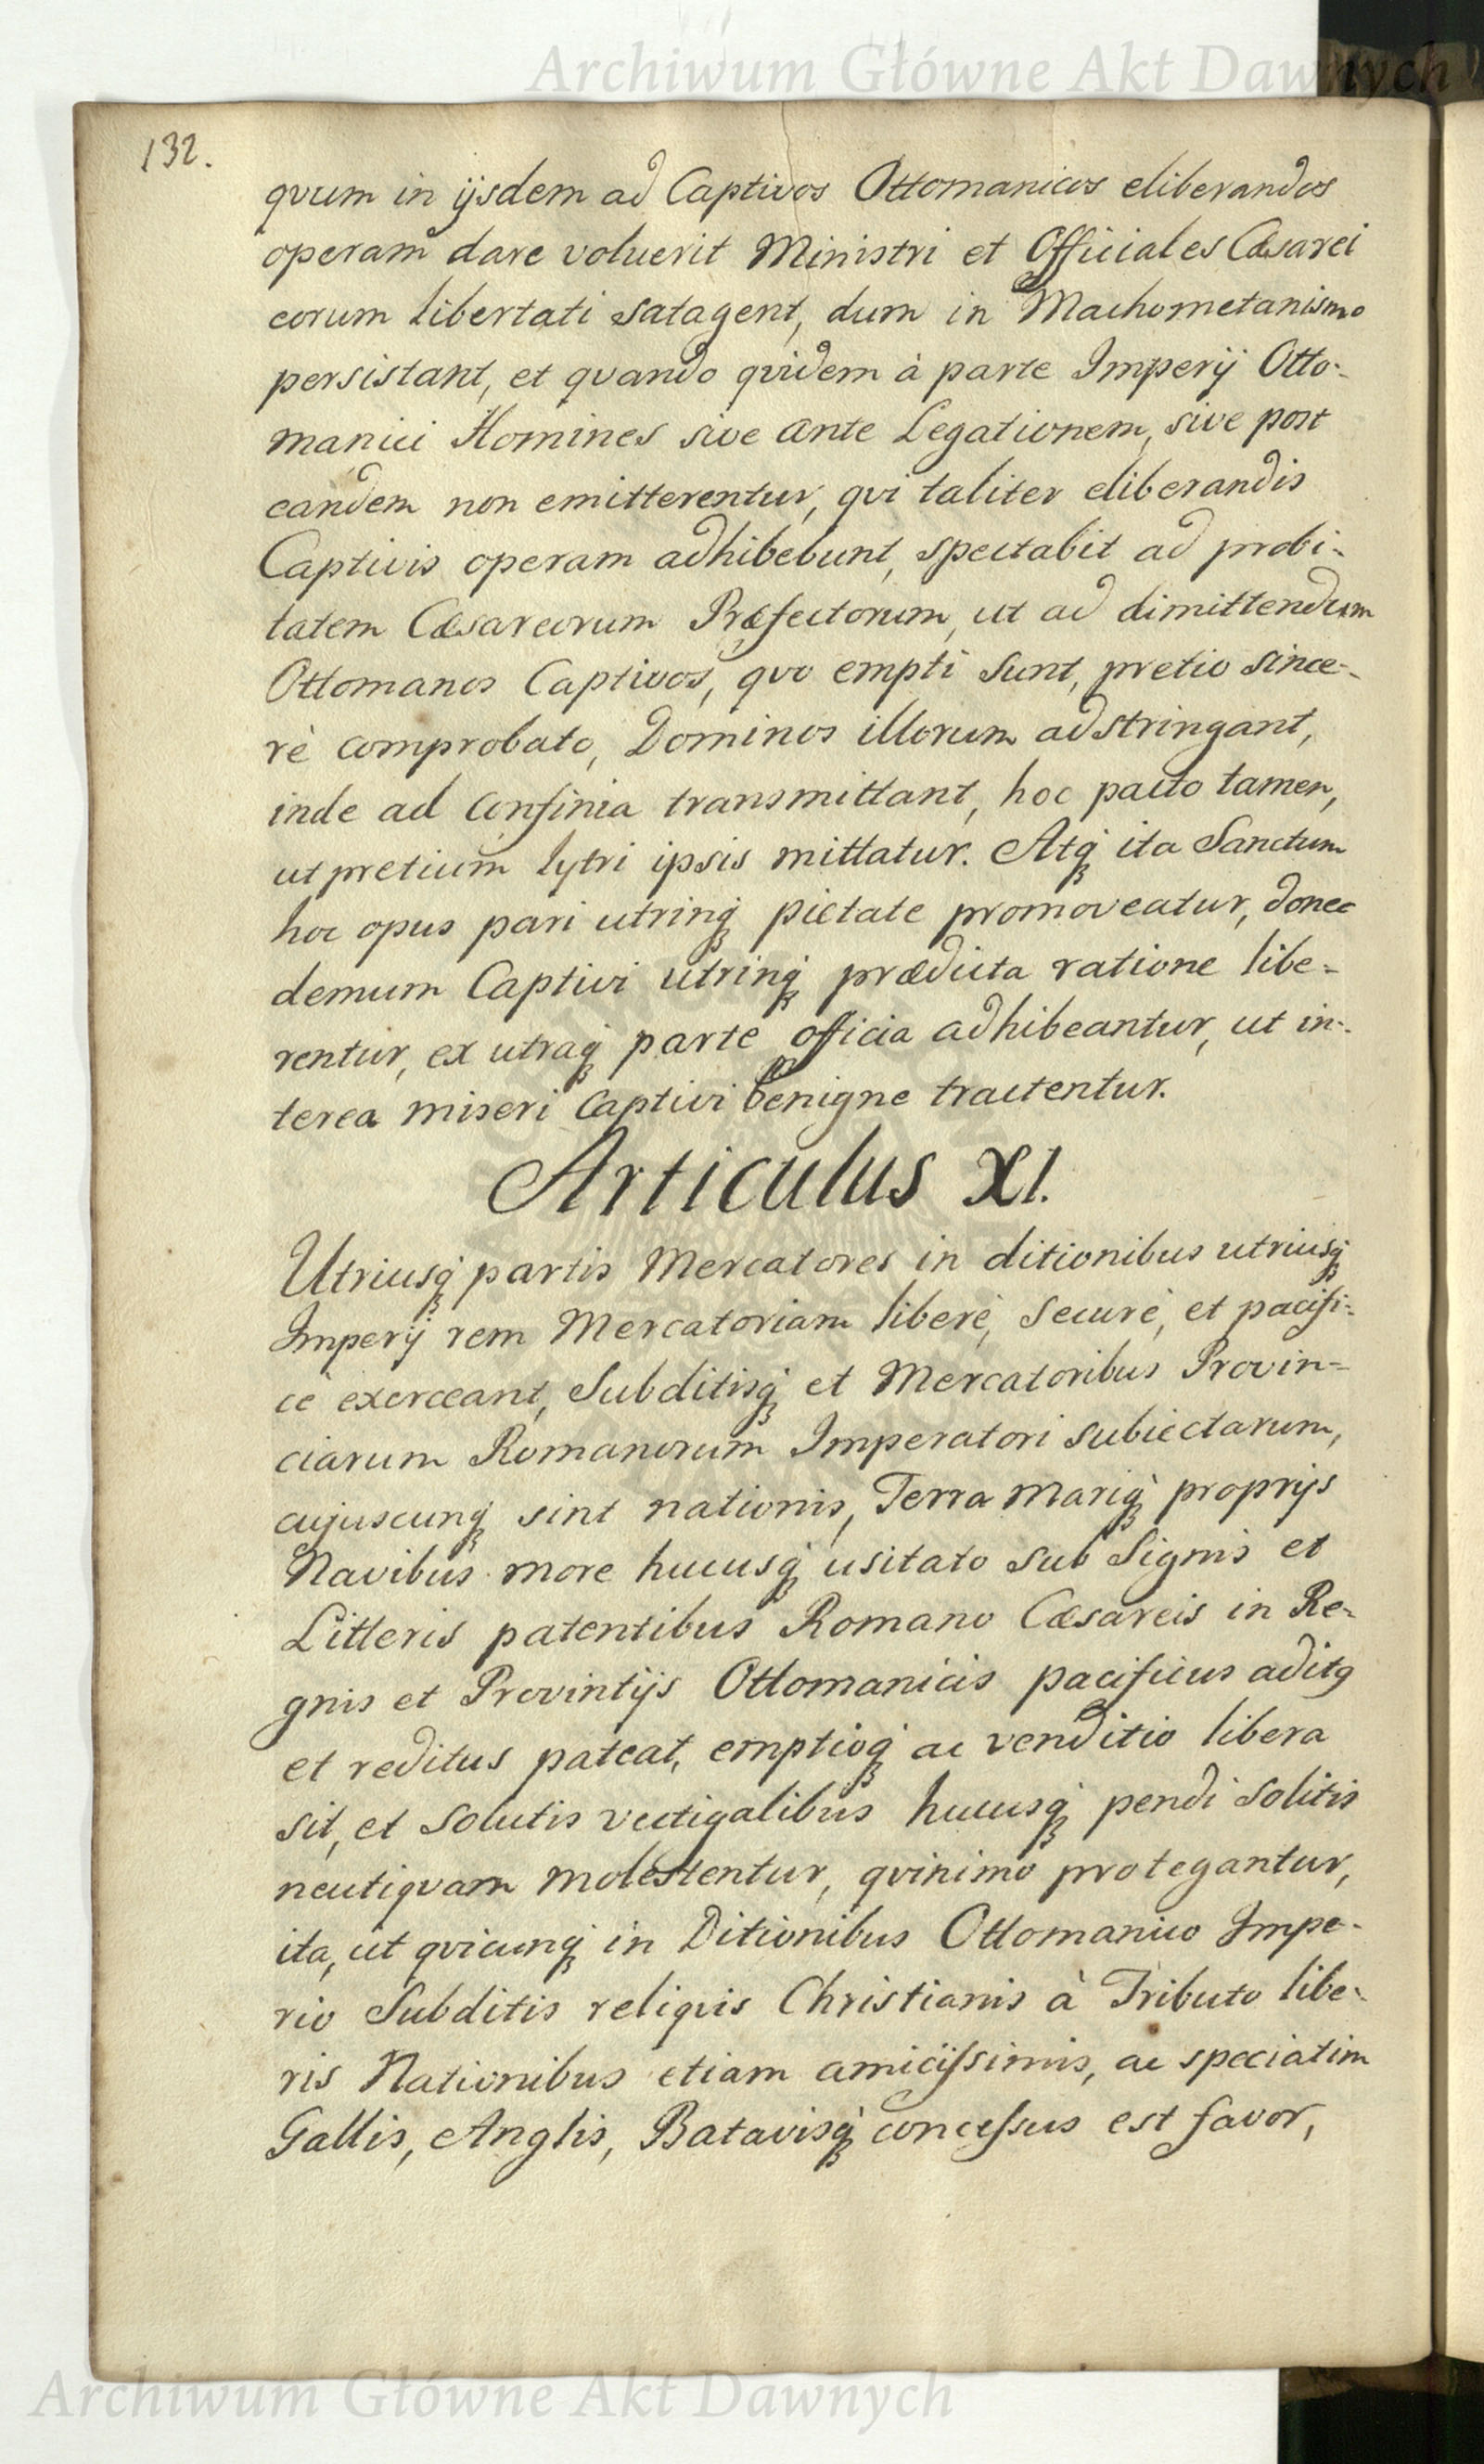 Archiwum Główne Akt Dawnych
132.
qvum in ijsdem ad Captivos Ottomanicos eliberandos
operam dare voluerit Ministri et Officiales Cæsarei
eorum libertati satagent, dum in Machometanismo
persistant, et qvando qvidem à parte Imperij Otto-
manici Homines sive ante Legationem, sive post
eandem non emitterentur, qvi taliter eliberandis
Captivis operam adhibebunt, spectabit ad probi-
tatem Cæsareorum Præfectorum, ut ad dimittendum
Ottomanos Captivos, qvo empti sunt, pretio since-
rè comprobato, Dominos illorum adstringant,
inde ad Confinia transmittant, hoc pacto tamen,
ut pretium lytri ipsis mittatur. Atq; ita Sanctum
hoc opus pari utrinq; pietate promoveatur, donec
demum Captivi utrinq; prædicta ratione libe-
rentur, ex utraq; parte officia adhibeantur, ut in-
terea miseri Captivi benigne tractentur.
Articulus XI.
Utriusq; partis Mercatores in ditionibus utriusq;
Imperij rem Mercatoriam liberè, Securè, et pacifi-
cè exerceant, Subditisq; et Mercatoribus Provin-
ciarum Romanorum Imperatori subiectarum,
cujuscunq; sint nationis, Terra Mariq; proprijs
Navibus more hucusq; usitato sub Signis et
Litteris patentibus Romano Cæsareis in Re-
gnis et Provintijs Ottomanicis pacificus aditq
et reditus pateat, emptioq; ac venditio libera
sit, et Solutis vectigalibus hucusq; pendi Solitis
neutiqvam molestentur, qvinimo protegantur,
ita, ut qvicunq; in Ditionibus Ottomanico Impe-
rio Subditis reliqvis Christianis à Tributo libe-
ris Nationibus etiam amicissimis, ac speciatim
Gallis, Anglis, Batavisq; concessus est favor,
Archiwum Główne Akt Dawnych